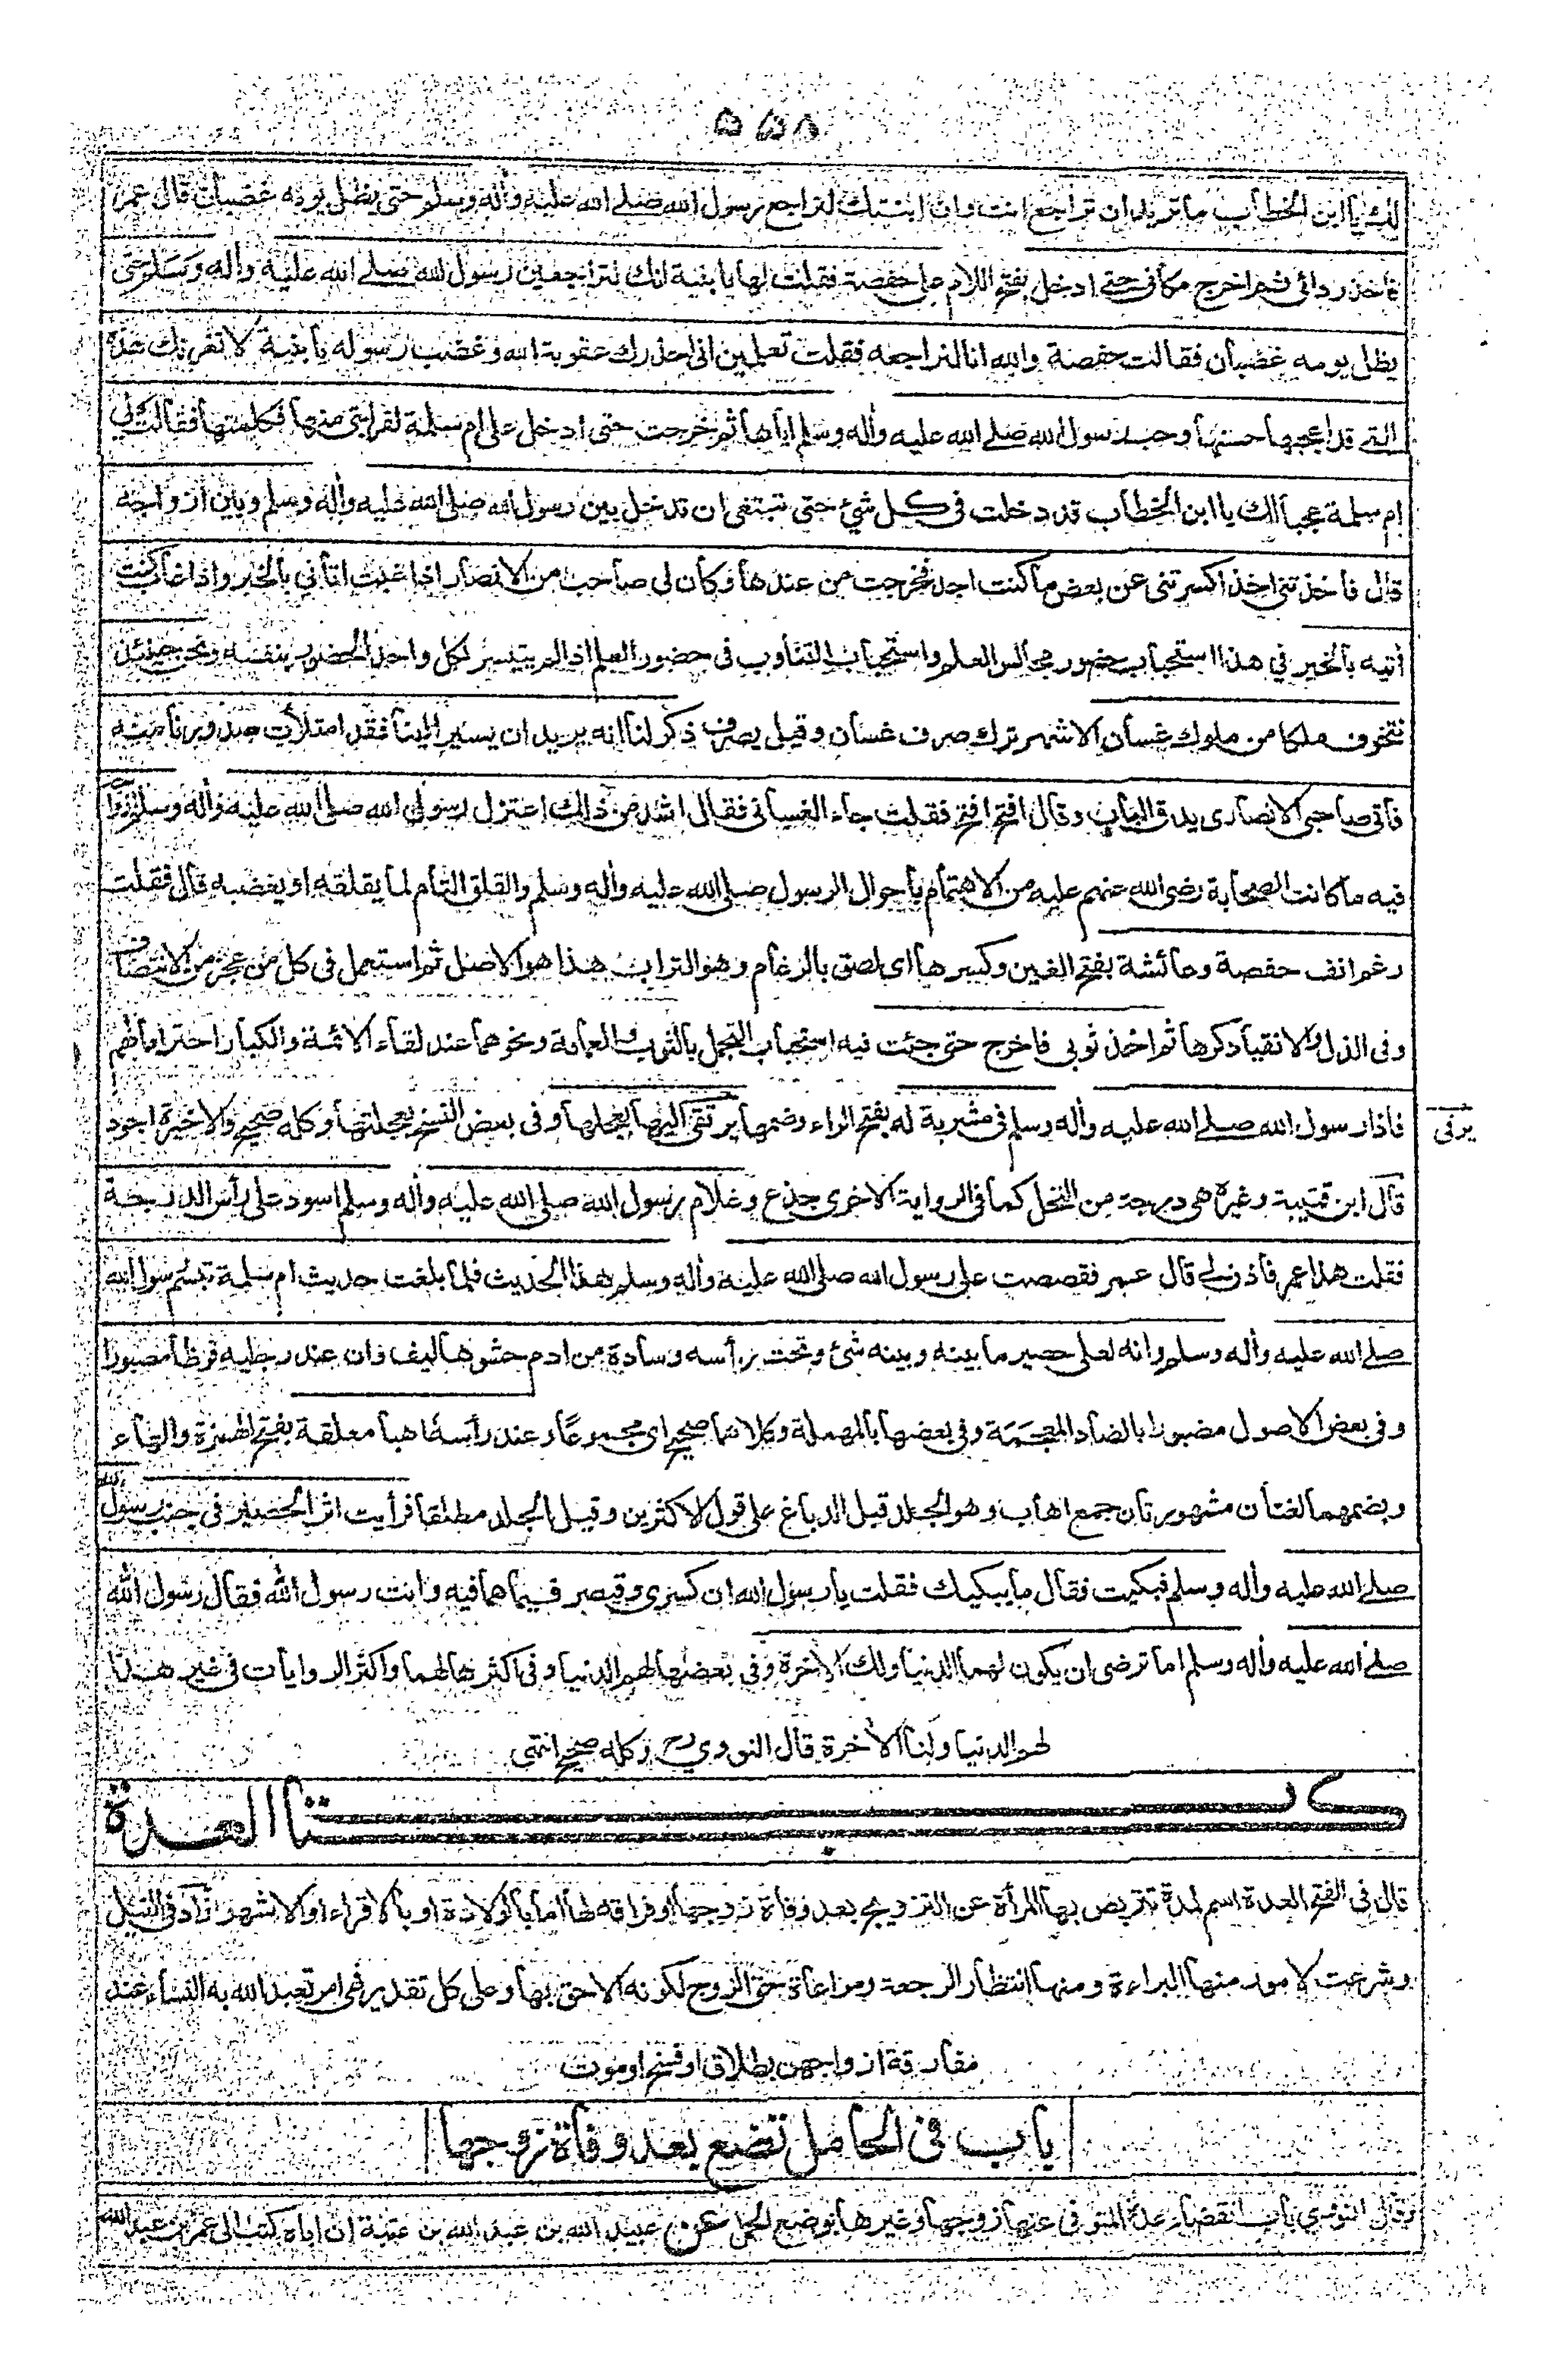 ٥٥٥
لك يا ابن الخطاب ما تريد ان تراجع انت وان ابنتك لتراجع رسول الله صلى الله عليه وأله وسلم حتى يظل يومه غضبان قال عمر
فأخذ ردائى ثم اخرج مكانى حتى ادخل بفتح اللام على حفصة فقلت لها يا بنية انك لتراجعين رسول الله صلى الله عليه وأله وسلم حتى
يظل يومه غضبان فقالت حفصة والله انا لنراجعه فقلت تعلمين انى احذرك عقوبة الله وغضب رسوله يا بنية لا تغرنك هذه
التى قد اعجبها حسنها وحب رسول الله صلى الله عليه وأله وسلم اياها ثم خرجت حتى ادخل على ام سلمة لقرابتى منها فكلمتها فقالت لى
ام سلمة عجبا لك يا ابن الخطاب قد دخلت فى كل شئ حتى تبتغى ان تدخل بين رسول الله صلى الله عليه وأله وسلم وبين ازواجه
قال فأخذتنى اخذا كسرتنى عن بعض ما كنت اجد فخرجت من عندها وكان لى صاحب من الانصار اذا غبت اتانى بالخبر واذا غاب كنت
أتيه بالخبر فى هذا استحباب حضور مجالس العلم واستحباب التناوب فى حضور العلم اذا لم يتيسر لكل واحد الحضور بنفسه ونحن حينئذ
نتخوف ملكا من ملوك غسان الاشهر ترك صرف غسان وقيل يصرف ذكر لنا انه يريد ان يسير الينا فقد امتلأت صدورنا منه
فأتى صاحبى الانصارى يدق الباب وقال افتح افتح فقلت جاء الغسانى فقال اشد من ذلك اعتزل رسول الله صلى الله عليه وأله وسلم ازواجه
فيه ما كانت الصحابة رضى الله عنهم عليه من الاهتمام بأحوال الرسول صلى الله عليه وأله وسلم والقلق التام لما يقلقه او يغضبه قال فقلت
رغم انف حفصة وعائشة بفتح الغين وكسرها اى لصق بالرغام وهو التراب هذا هو الاصل ثم استعمل فى كل من عجز من الانتصاف
وفى الذل والانقياد كرها ثم اخذ ثوبى فاخرج حتى جئت فيه استحباب التجمل بالثوب والعمامة ونحوهما عند لقاء الائمة والكبار احتراما لهم
فاذا رسول الله صلى الله عليه وأله وسلم فى مشربة له بفتح الراء وضمها يرتقى اليها بعجلها وفى بعض النسخ بعجلتها وكله صحيح والاخيرة اجود
يرقى
قال ابن قتيبة وغيره هى درجة من النخل كما فى الرواية الاخرى جذع وغلام رسول الله صلى الله عليه وأله وسلم اسود على رأس الدرجة
فقلت هذا عمر فأذن لى قال عمر فقصصت على رسول الله صلى الله عليه وأله وسلم هذا الحديث فلما بلغت حديث ام سلمة تبسم رسول الله
صلى الله عليه وأله وسلم وانه لعلى حصير ما بينه وبينه شئ وتحت رأسه وسادة من ادم حشوها ليف وان عند رجليه قرظا مصبورا
وفى بعض الاصول مضبورا بالضاد المعجمة وفى بعضها بالمهملة وكلاهما صحيح اى مجموعا وعند رأسه اهبا معلقة بفتح الهمزة والهاء
وبضمهما لغتان مشهورتان جمع اهاب وهو الجلد قبل الدباغ على قول الاكثرين وقيل الجلد مطلقا فرأيت اثر الحصير فى جنب رسول الله
صلى الله عليه وأله وسلم فبكيت فقال ما يبكيك فقلت يا رسول الله ان كسرى وقيصر فيما هما فيه وانت رسول الله فقال رسول الله
صلى الله عليه وأله وسلم اما ترضى ان يكون لهما الدنيا ولك الاخرة وفى بعضها لهم الدنيا وفى اكثرها لهما واكثر الروايات فى غير هذا
لهم الدنيا ولنا الأخرة قال النووي رح وكله صحيح انتهى
كتاب العدة
قال فى الفتح العدة اسم لمدة تتربص بها المرأة عن التزويج بعد وفاة زوجها او فراقه لها اما بالولادة او بالاقراء او الاشهر زاد فى النيل
وشرعت لامور منها البراءة ومنها انتظار الرجعة ومراعاة حق الزوج لكونه الاحق بها وعلى كل تقدير فهى امر تعبد الله به النساء عند
مفارقة ازواجهن بطلاق او فسخ او موت
باب فى الحامل تضع بعد وفاة زوجها
وقال النووي باب انقضاء عدة المتوفى عنها زوجها وغيرها بوضع الحمل عن عبيد الله بن عبد الله بن عتبة ان اباه كتب الى عمر بن عبد الله